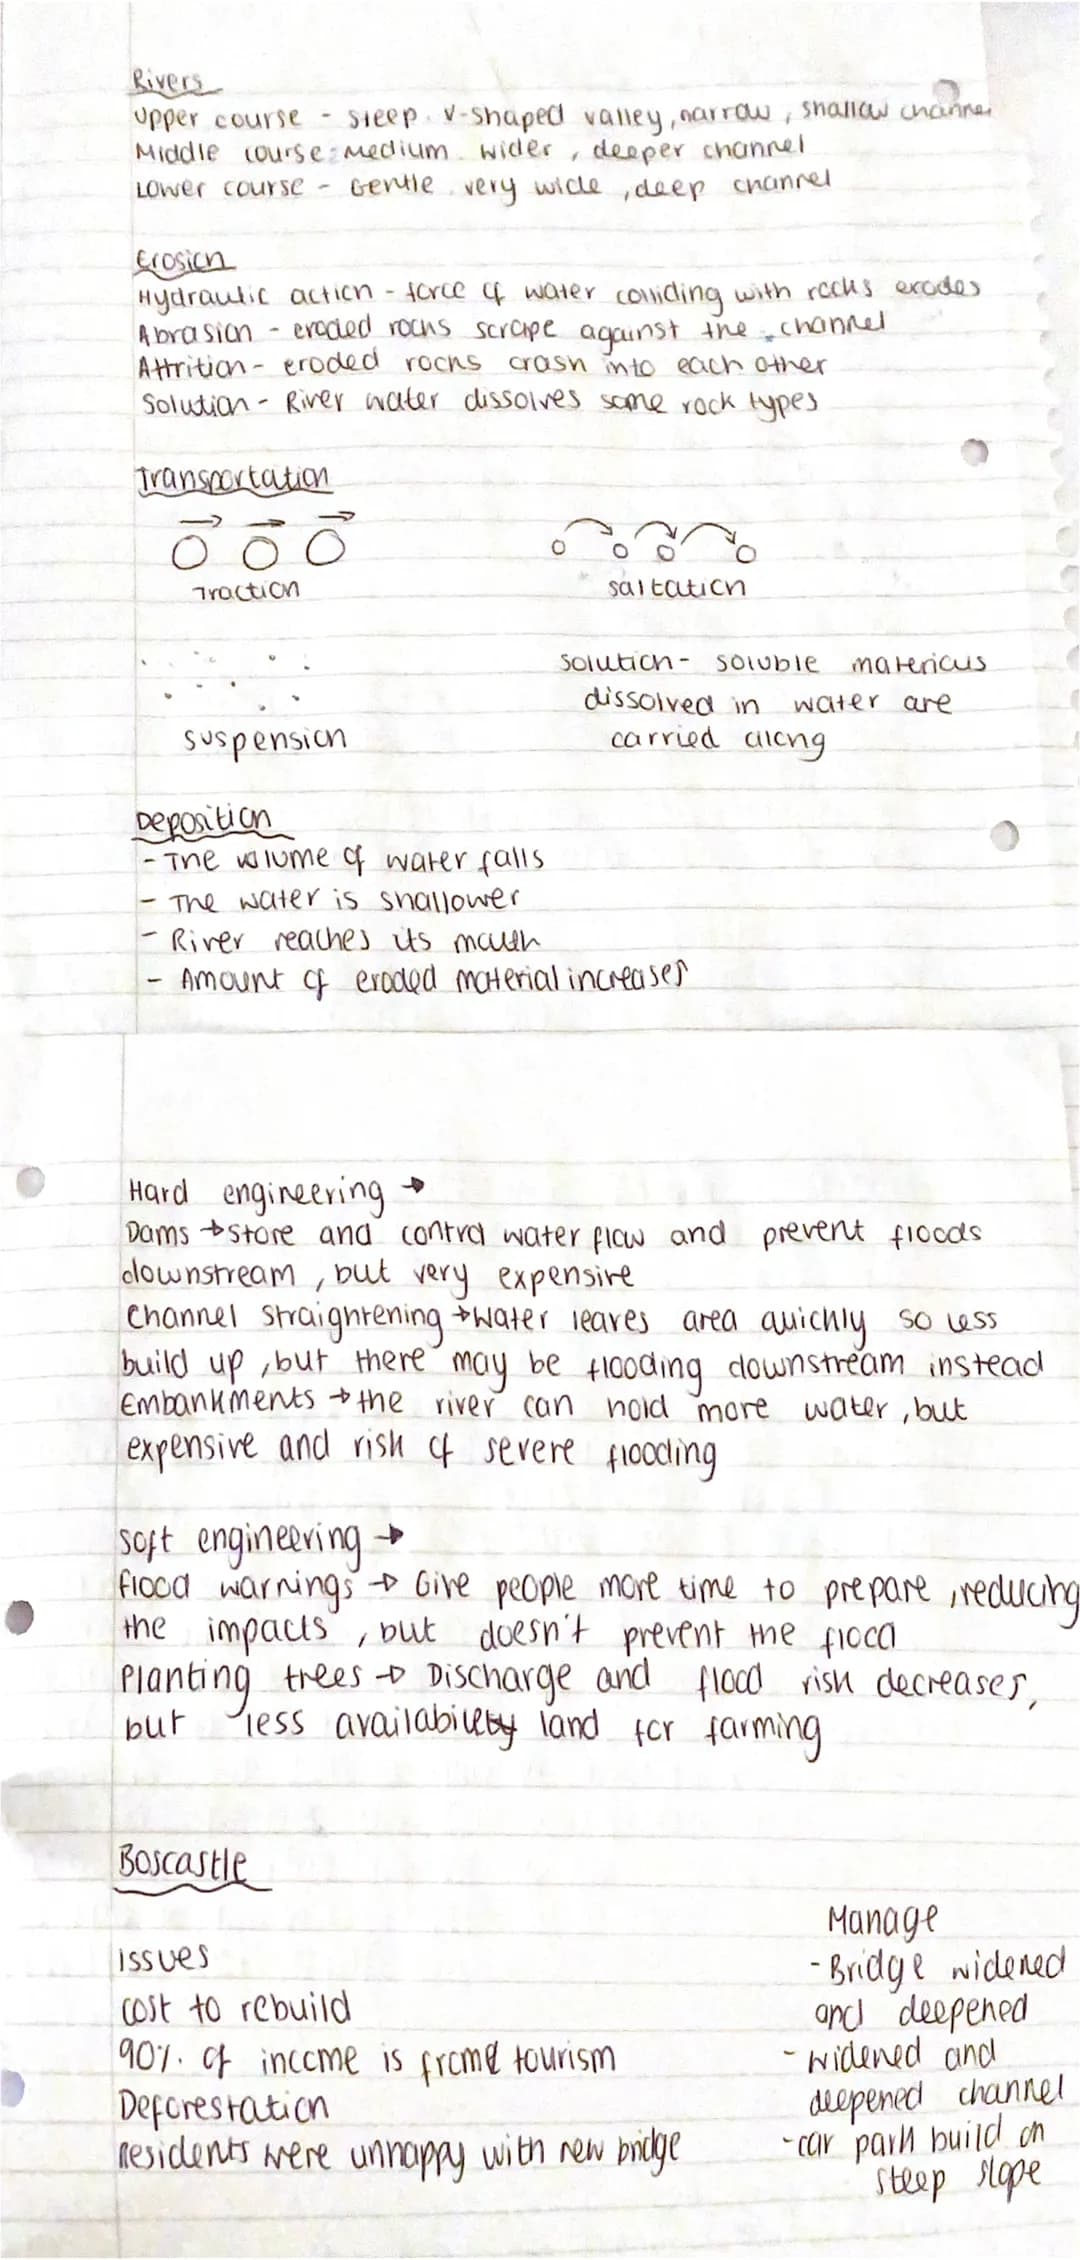 Rivers
Upper course - steep. V-shaped valley, narrow, shallow channel
Middle course: Medium. wider, deeper channel
Lower course - Gentle. very wide, deep channel
Erosion
Hydraulic action - force of water colliding with rocks erodes
Abrasion - eroded rocks scrape against the channel
Attrition - eroded rocks crash into each other
Solution - River water dissolves some rock types
Transportation
Traction
saltation
solution - soluble materials
dissolved in water are
carried along
suspension
Deposition
- The volume of water falls
- The water is shallower
- River reaches its mouth
- Amount of eroded material increases
Hard engineering →
Dams → store and control water flow and prevent floods
downstream, but very expensive
Channel straightening → water leaves area quickly so less
build up, but there may be flooding downstream instead
Embankments → the river can hold more water, but
expensive and risk of severe flooding
Soft engineering →
flood warnings → Give people more time to prepare, reducing
the impacts, but doesn't prevent the flood
Planting trees → Discharge and flood risk decreases,
but less availability land for farming
Boscastle
issues
cost to rebuild
90% of income is from tourism
Deforestation
Residents were unhappy with new bridge
Manage
- Bridge widened
and deepened
- widened and
deepened channel
- car park build on
steep slope